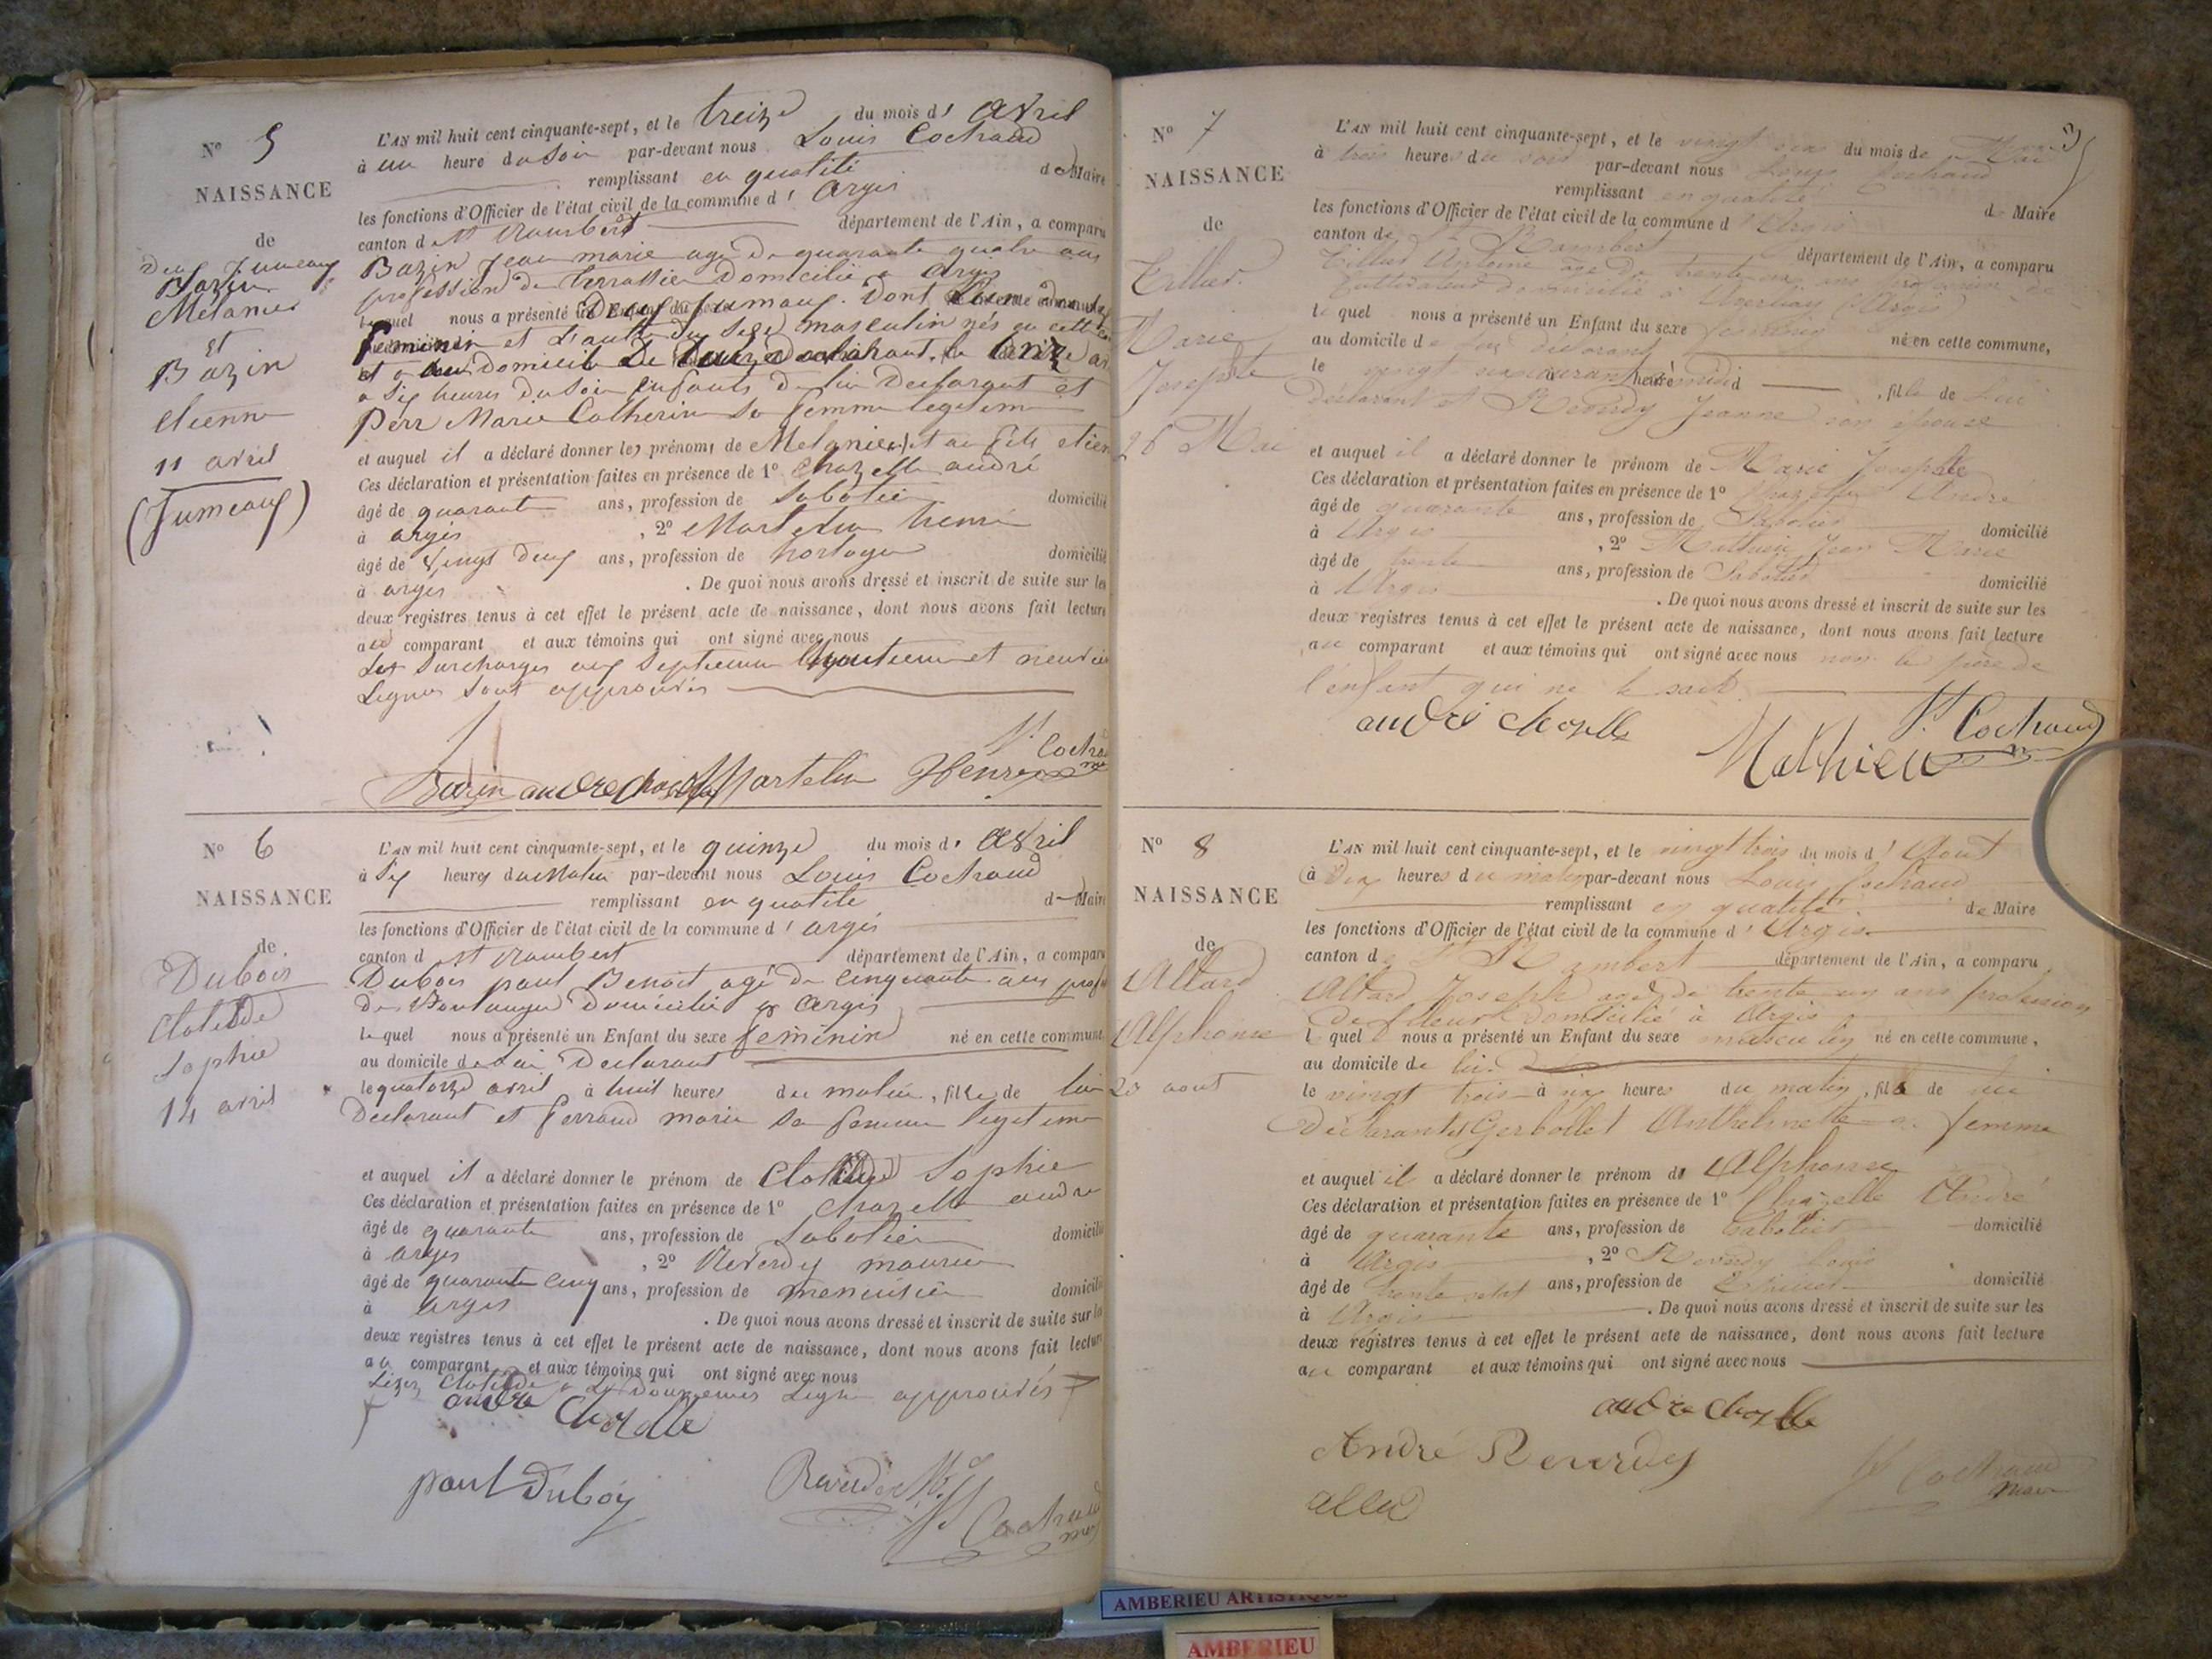 N° 5
NAISSANCE
de
Deux Jumeaux
Bazin
Mélanie
et
Bazin
etienne
11 avril
(Jumeaux)
L'AN mil huit cent cinquante-sept, et le treize du mois d' avril
à un heure du soir par-devant nous Louis Cochraud
remplissant en qualité de Maire
les fonctions d'Officier de l'état civil de la commune d' argis
canton de St Rambert département de l'Ain, a comparu
Bazin Jean marie agé de quarante quatre ans
profession de terrassier domicilié a argis
lequel nous a présenté Deux Jumeaux. Dont
feminin et L'autre du sexe masculin nés en cette
et a domicile De
a six heures du soir enfants de lui Declarant et
Perr Marie Catherine sa femme legitime
et auquel il a déclaré donner les prénoms de Melanie et au fils etien
Ces déclaration et présentation faites en présence de 1° Chazelle andré
âgé de quarante ans, profession de Sabotier domicilié
à argis , 2° Martelin henri
âgé de vingt deux ans, profession de horloger domicilié
à argis . De quoi nous avons dressé et inscrit de suite sur les
deux registres tenus à cet effet le présent acte de naissance, dont nous avons fait lecture
au comparant et aux témoins qui ont signé avec nous
Les surcharges aux septieme huitieme et neuvie
Lignes sont approuvés
Bazin andre chazelle Martelin Henri Lˢ Cochraud
N° 6
NAISSANCE
de
Dubois
Clotilde
Sophie
14 avril
L'AN mil huit cent cinquante-sept, et le quinze du mois d' avril
à six heures du Matin par-devant nous Louis Cochraud
remplissant en qualité de Maire
les fonctions d'Officier de l'état civil de la commune d' argis
canton d St Rambert département de l'Ain, a comparu
Dubois paul Benoit agé de cinquante ans profes
de Boulanger Domicilié a argis
lequel nous a présenté un Enfant du sexe feminin né en cette commune
au domicile de Lui Declarant
le quatorze avril à huit heures du matin, fille de lui
Declarant et Ferraud marie sa femme legitime
et auquel il a déclaré donner le prénom de Clotilde Sophie
Ces déclaration et présentation faites en présence de 1° Chazelle andre
âgé de quarante ans, profession de Sabotier domicilié
à argis , 2° Reverdy maurice
âgé de quarante cinq ans, profession de menuisier domicilié
à argis . De quoi nous avons dressé et inscrit de suite sur les
deux registres tenus à cet effet le présent acte de naissance, dont nous avons fait lecture
au comparant et aux témoins qui ont signé avec nous
Lisez Clotilde a La Douziemes Ligne approuvés
andre Chazelle
paul Duboy Lˢ Cochraud
N° 7
NAISSANCE
de
Tillier
Marie
Josephte
26 Mai
L'AN mil huit cent cinquante-sept, et le vingt six du mois de Mai
à trois heures du soir par-devant nous Louis Cochraud
remplissant en qualité de Maire
les fonctions d'Officier de l'état civil de la commune d' Argis
canton de St Rambert département de l'Ain, a comparu
Tillier Antoine âgé de trente ans profession de
Cultivateur domicilié à
lequel nous a présenté un Enfant du sexe féminin né en cette commune,
au domicile de lui déclarant
le vingt six courant à heure midi d , fille de Lui
Déclarant et Reverdy Jeanne son épouse
et auquel il a déclaré donner le prénom de Marie Josephte
Ces déclaration et présentation faites en présence de 1° Chazelle André
âgé de quarante ans, profession de Sabotier domicilié
à Argis , 2° Mathieu Jean Marie
âgé de trente ans, profession de Sabotier domicilié
à Argis . De quoi nous avons dressé et inscrit de suite sur les
deux registres tenus à cet effet le présent acte de naissance, dont nous avons fait lecture
au comparant et aux témoins qui ont signé avec nous non le père de
l'enfant qui ne le sait
andre chazelle Lˢ Cochraud
Mathieu
N° 8
NAISSANCE
de
Allard
Alphonse
23 aout
L'AN mil huit cent cinquante-sept, et le vingt trois du mois d' Aout
à dix heures du matin par-devant nous Louis Cochraud
remplissant en qualité de Maire
les fonctions d'Officier de l'état civil de la commune d' Argis
canton de St Rambert département de l'Ain, a comparu
Allard Joseph agé de trente ans profession
de fileur domicilié à Argis
lequel nous a présenté un Enfant du sexe masculin né en cette commune,
au domicile de lui
le vingt trois à six heures du matin, fils de lui
Déclarant et Gerbollet Anthelmette sa femme
et auquel il a déclaré donner le prénom de Alphonse
Ces déclaration et présentation faites en présence de 1° Chazelle André
âgé de quarante ans, profession de Sabotier domicilié
à Argis , 2° Reverdy
âgé de trente sept ans, profession de domicilié
à Argis . De quoi nous avons dressé et inscrit de suite sur les
deux registres tenus à cet effet le présent acte de naissance, dont nous avons fait lecture
au comparant et aux témoins qui ont signé avec nous
andre chazelle
André Reverdy Lˢ Cochraud
maire
AMBERIEU ARTISTIQUE
AMBERIEU